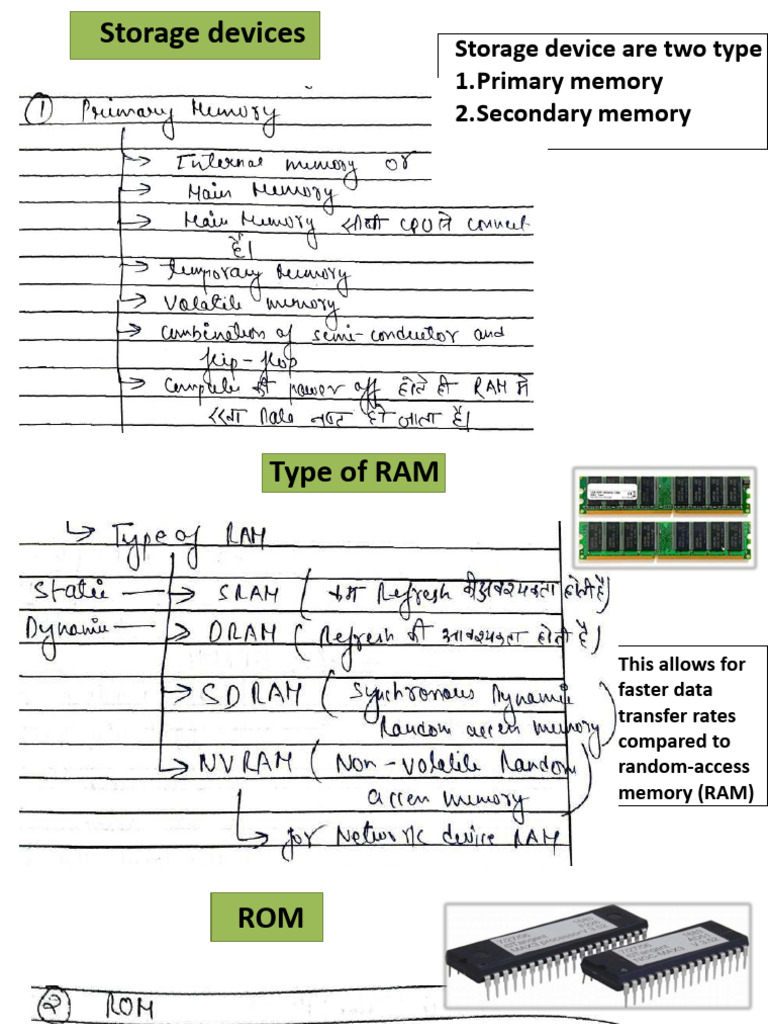 Storage devices
Storage device are two type
1.Primary memory
2.Secondary memory
① Primary Memory
→ Internal memory or
→ Main Memory
→ Main Memory सीधी CPU से connect
है।
→ Temporary Memory
→ Volatile memory
→ Combination of semi-conductor and
flip-flop
→ Computer की power off होते ही RAM मे
रखा Data नष्ट हो जाता है।
Type of RAM
↳ Type of RAM
Static → SRAM ( कम Refresh की आवश्यकता होती है)
Dynamic → DRAM (Refresh की आवश्यकता होती है)
→ SDRAM ( Synchronous Dynamic
Random access memory
→ NVRAM ( Non-Volatile Random
access memory
↳ for Network device RAM
This allows for
faster data
transfer rates
compared to
random-access
memory (RAM)
ROM
② ROM